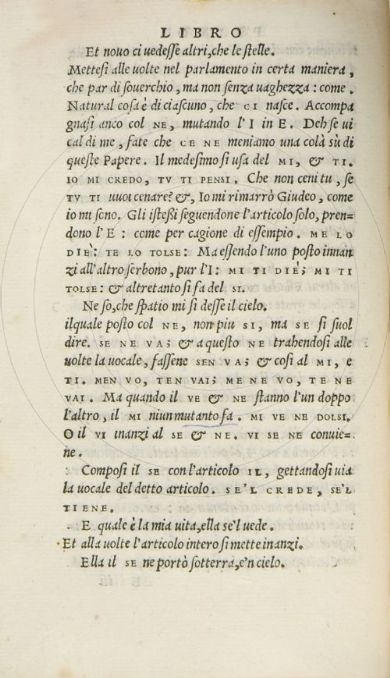 LIBRO
Et nouo ci uedesse altri, che le stelle.
Mettesi alle uolte nel parlamento in certa maniera,
che par di souerchio, ma non senza uaghezza: come.
Natural cosa è di ciascuno, che CI nasce. Accompa
gnasi anco col NE, mutando l'I in E. Deh se ui
cal di me, fate che CE NE meniamo una colà sù di
queste Papere. Il medesimo si usa del MI, & TI.
IO MI CREDO, TV TI PENSI. Che non ceni tu, se
TV TI uuoi cenare? &, Io mi rimarrò Giudeo, come
io mi sono. Gli istessi seguendone l'articolo solo, pren=
dono l'E: come per cagione di essempio. ME LO
DIE': TE LO TOLSE: Ma essendo l'uno posto innan
zi all'altro serbono, pur l'I: MI TI DIE'; MI TI
TOLSE: & altretanto si fa del SI.
Ne so, che spatio mi si desse il cielo.
ilquale posto col NE, non piu SI, ma SE si suol
dire. SE NE VA; & a questo NE trahendosi alle
uolte la uocale, fassene SEN VA; & cosi al MI, e
TI. MEN VO, TEN VAI; ME NE VO, TE NE
VAI. Ma quando il VE & NE stanno l'un doppo
l'altro, il MI niun mutanto fa. MI VE NE DOLSI.
O il VI inanzi al SE & NE. VI SE NE conuie=
ne.
Composi il SE con l'articolo IL, gettandosi uia
la uocale del detto articolo. SE'L CREDE, SE'L
TIENE.
E quale è la mia uita, ella se'l uede.
Et alla uolte l'articolo intero si mette inanzi.
Ella il SE ne portò sotterra, e'n cielo.